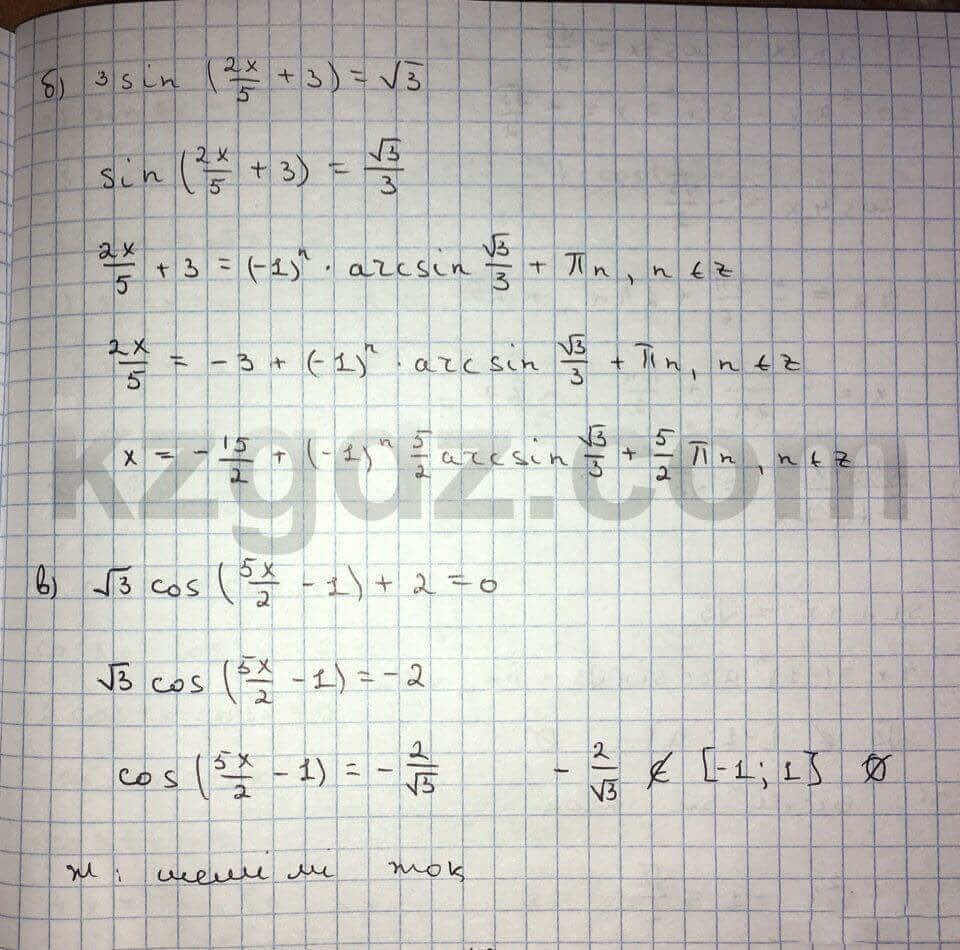 б) 3 sin (2x/5 + 3) = √3
sin (2x/5 + 3) = √3/3
2x/5 + 3 = (-1)ⁿ · arcsin √3/3 + πn, n ∈ z
2x/5 = -3 + (-1)ⁿ · arcsin √3/3 + πn, n ∈ z
x = -15/2 + (-1)ⁿ 5/2 arcsin √3/3 + 5/2 πn, n ∈ z
kzgdz.com
в) √3 cos (5x/2 - 1) + 2 = 0
√3 cos (5x/2 - 1) = -2
cos (5x/2 - 1) = -2/√3 -2/√3 ∉ [-1; 1] ∅
ж: шешімі жоқ